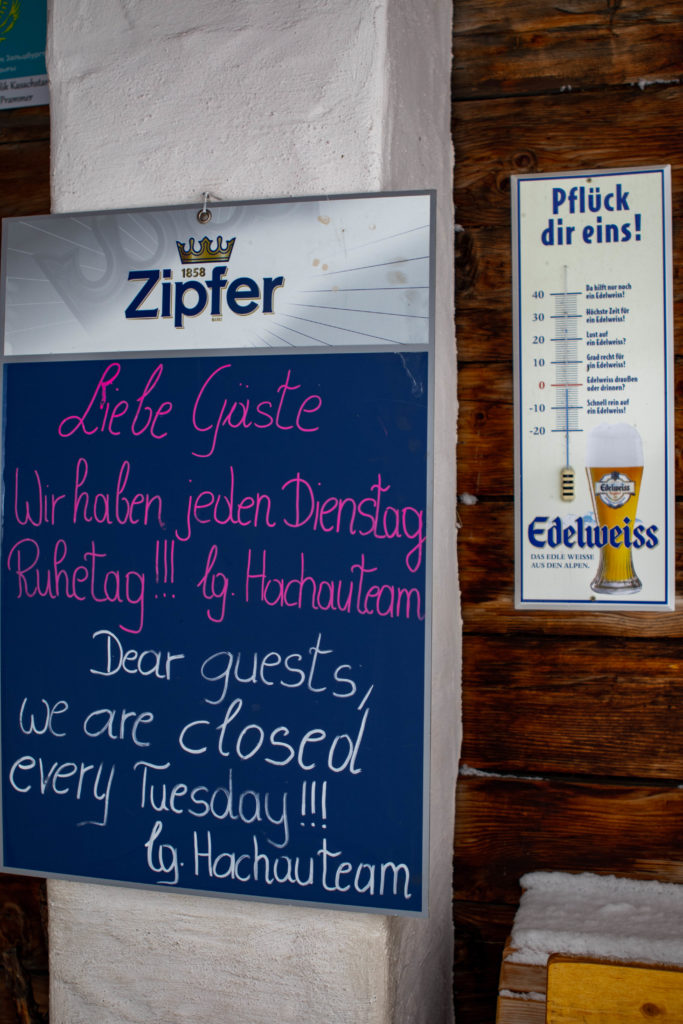 lik Kasachstan
Prammer
1858
Zipfer
Liebe Gäste
Wir haben jeden Dienstag
Ruhetag!!! lg. Hachauteam
Dear guests,
we are closed
every Tuesday!!!
lg. Hachauteam
Pflück
dir eins!
40 Da hilft nur noch
ein Edelweiss!
30 Höchste Zeit für
ein Edelweiss!
20 Lust auf
ein Edelweiss?
10 Grad recht für
ein Edelweiss!
0 Edelweiss draußen
oder drinnen?
-10 Schnell rein auf
ein Edelweiss!
-20
Edelweiss
Edelweiss
DAS EDLE WEISSE
AUS DEN ALPEN.